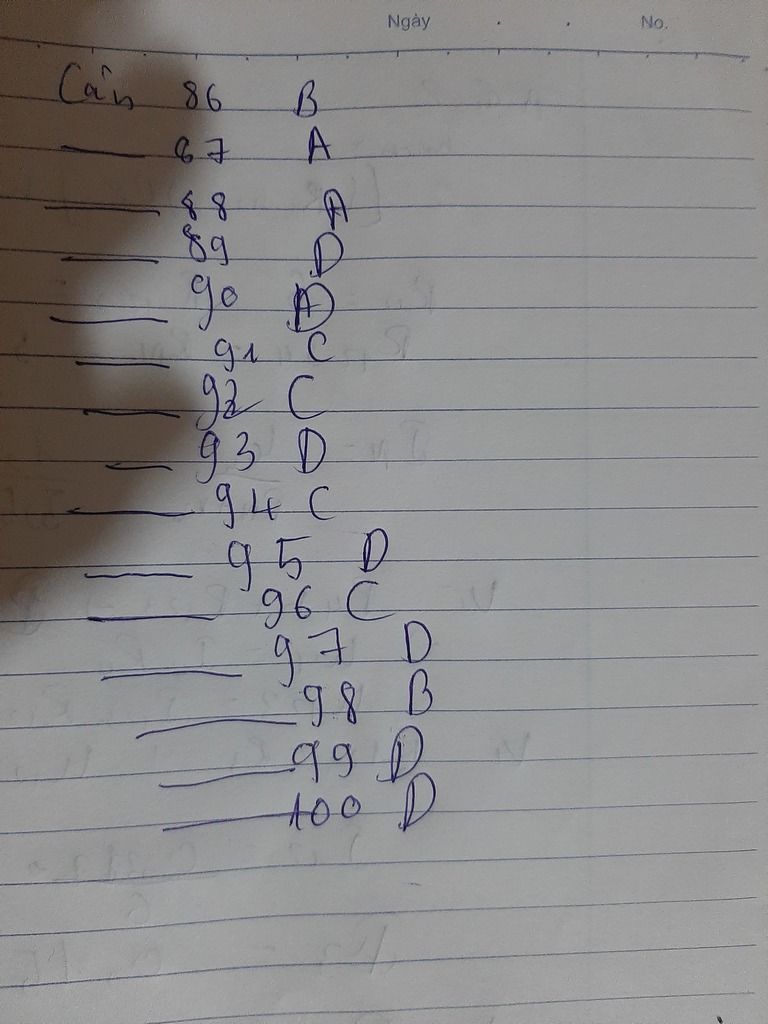 Ngày . . No.
Câu 86 B
— 87 A
— 88 A
— 89 D
— 90 D
— 91 C
— 92 C
— 93 D
— 94 C
— 95 D
— 96 C
— 97 D
— 98 B
— 99 D
— 100 D